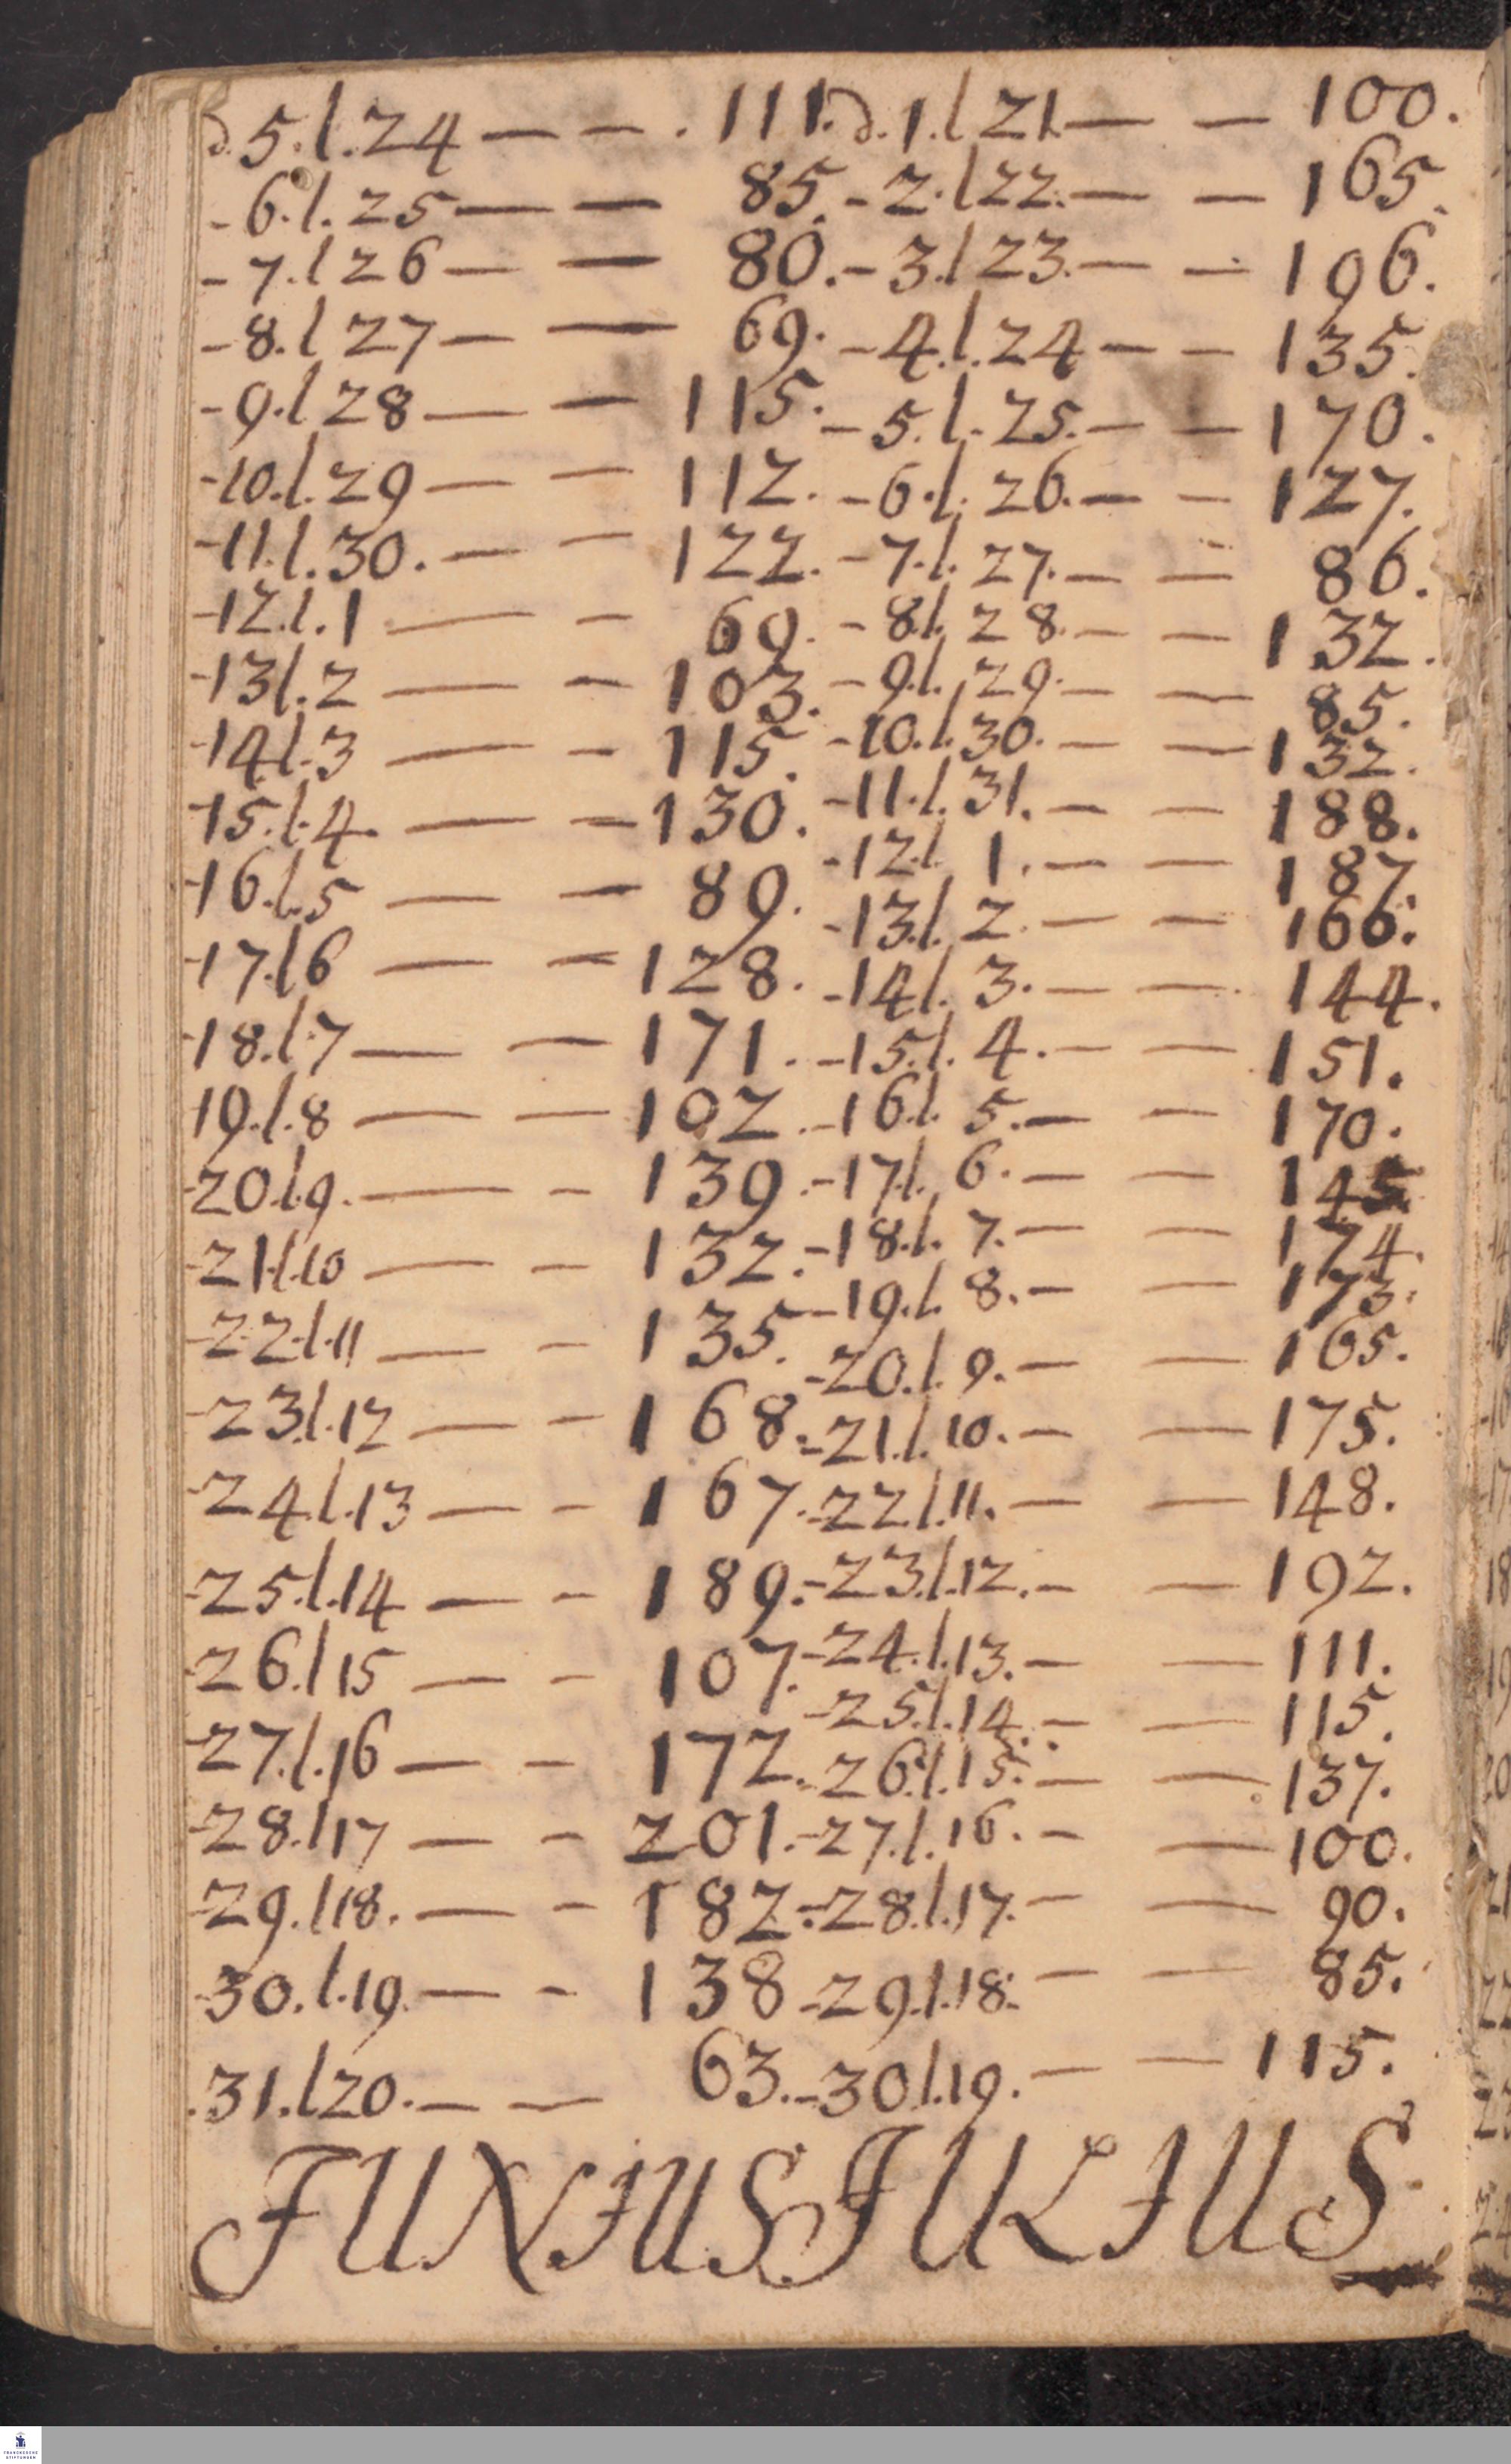 d. 5. l. 24 — — . 111.
- 6. l. 25 — — 85.
- 7. l 26 — — 80.
- 8. l 27 — — 69.
- 9. l 28 — — 115.
- 10. l. 29 — — 112.
- 11. l. 30. — — 122.
- 12. l. 1 — — 69.
- 13 l. 2 — — 103.
- 14 l. 3 — — 115.
- 15. l. 4. — — 130.
- 16. l. 5 — — 89.
- 17. l 6 — — 128.
- 18. l. 7 — — 171.
19. l. 8 — — 102.
- 20 l. 9. — — 139.
- 21 l. 10 — — 132.
- 22. l. 11 — — 135.
- 23. l. 12 — — 168.
- 24. l. 13 — — 167.
- 25. l. 14 — — 189.
- 26. l 15 — — 107.
- 27. l. 16 — — 172.
- 28. l 17 — — 201.
- 29. l 18. — — 182.
- 30. l. 19. — — 138
. 31. l 20. — — 63.
d. 1. l 21 — — 100.
- 2. l 22. — — 165.
- 3. l 23. — — 196.
- 4. l. 24 — — 135.
- 5. l. 25. — — 170.
- 6. l. 26. — — 127.
- 7. l. 27. — — 86.
- 8 l. 28. — — 132.
- 9. l. 29. — — 85.
- 10. l. 30. — — 132.
- 11. l. 31. — — 188.
- 12. l. 1. — — 187.
- 13. l. 2. — — 166.
- 14 l. 3. — — 144.
- 15. l. 4. — — 151.
- 16. l. 5. — — 170.
- 17. l. 6. — — 145.
- 18. l. 7. — — 174.
- 19. l. 8. — — 173.
- 20. l. 9. — — 165.
- 21. l. 10. — — 175.
- 22. l. 11. — — 148.
- 23. l. 12. — — 192.
- 24. l. 13. — — 111.
- 25. l. 14. — — 115.
- 26. l. 15. — — 137.
- 27. l. 16. — — 100.
- 28. l. 17. — — 90.
- 29. l. 18. — — 85.
- 30 l. 19. — — 115.
JUNIUS JULIUS
FRANCKESCHE
STIFTUNGEN